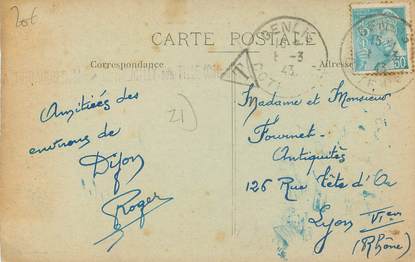 20€
CARTE POSTALE
Correspondance
Adresse
GENLIS
-3
43
T
50
Amitiées des
environs de
Dijon
Roger
21)
Madame et Monsieur
Fournet
Antiquités
126 Rue Tête d'Or
Lyon VIem
(Rhône)